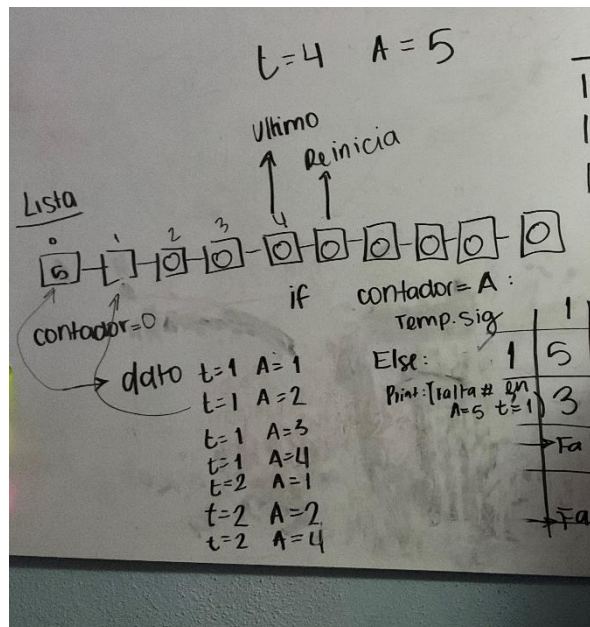 t=4 A=5
Ultimo
Reinicia
Lista
0 1 2 3 4
5 0 0 0 0 0 0 0 0
contador=0
if contador=A:
Temp.sig
Else:
Print:[Falta # en
A=5 t=1)
dato t=1 A=1
t=1 A=2
t=1 A=3
t=1 A=4
t=2 A=1
t=2 A=2
t=2 A=4
1
1 5
3
Fa
Fa